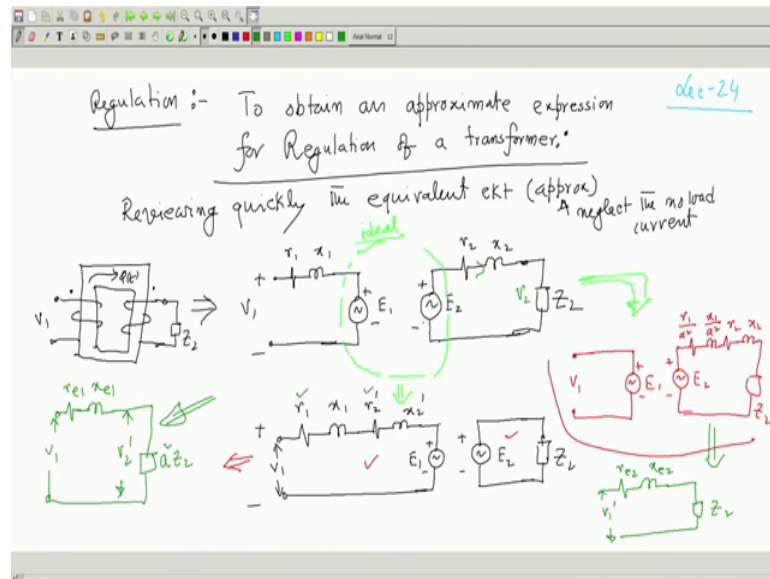 Arial Normal 12
Lec-24
Regulation :- To obtain an approximate expression
for Regulation of a transformer.
Reviewing quickly the equivalent ckt (approx)
neglect the no load
current
ideal
φ(t)
V1
Z2
+
V1
-
r1 x1
+
E1
-
+
E2
-
r2 x2
V2
Z2
r1/a² x1/a² r2 x2
V1
+
E1
-
+
E2
-
Z2
re1 xe1
V1
V2'
a²Z2
r1 x1 r2' x2'
+
V1
-
+
E1
-
+
E2
-
Z2
re2 xe2
V1'
Z2